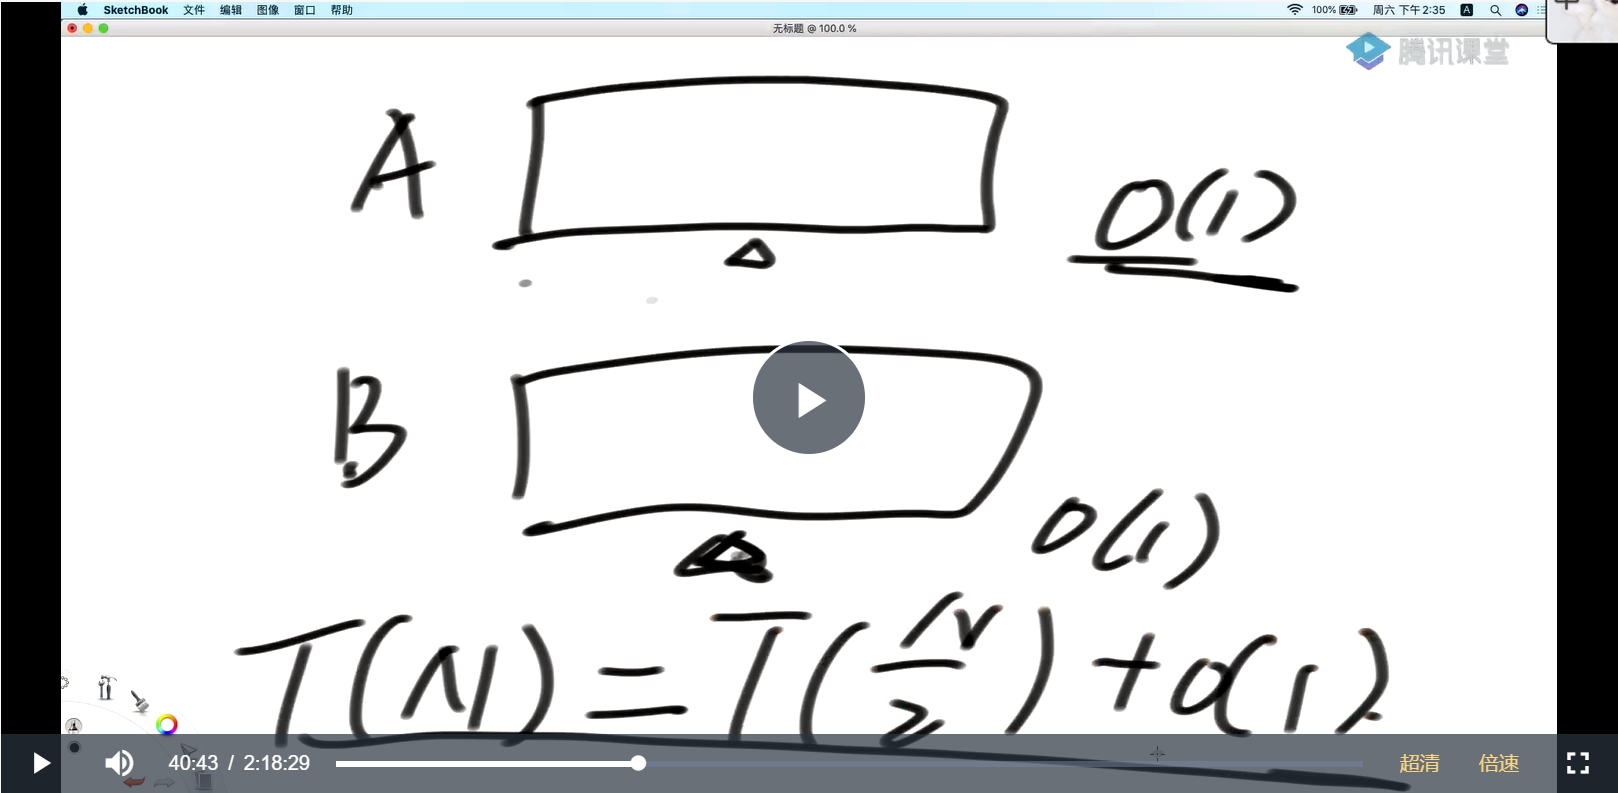 SketchBook 文件 编辑 图像 窗口 帮助 100% 周六 下午2:35 A
无标题 @ 100.0 %
腾讯课堂
A
O(1)
B
O(1)
T(N) = T(N/2) + O(1)
40:43 / 2:18:29 超清 倍速